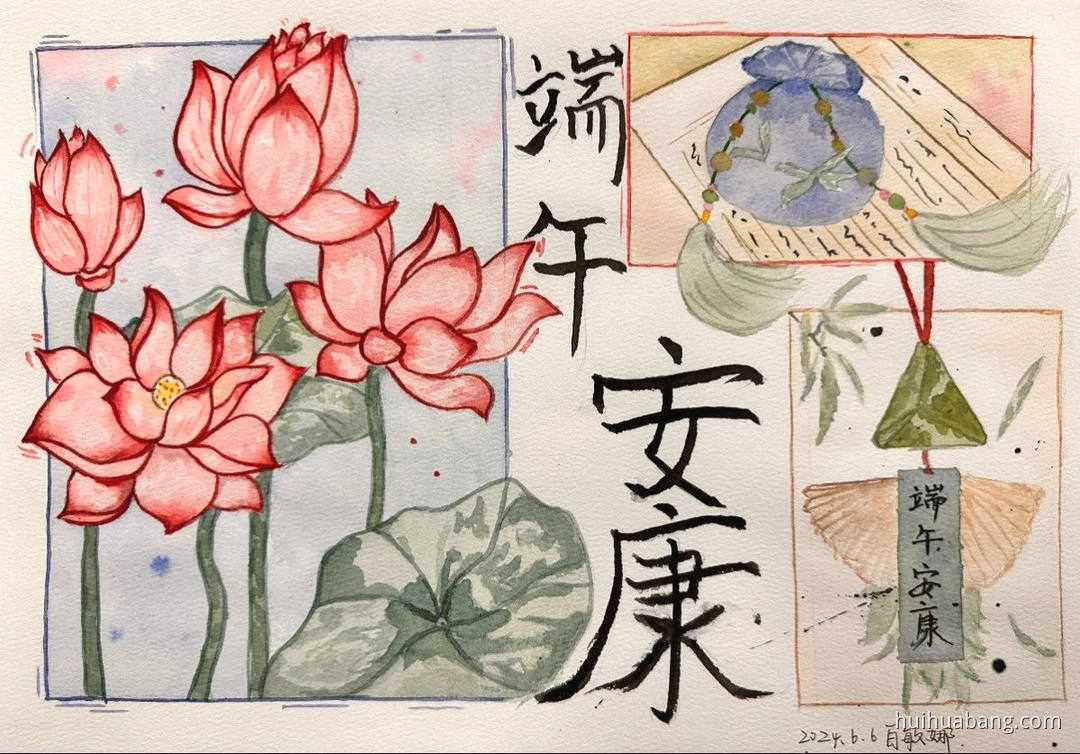 端午
安康
端午安康
2024.6.6
huihuabang.com